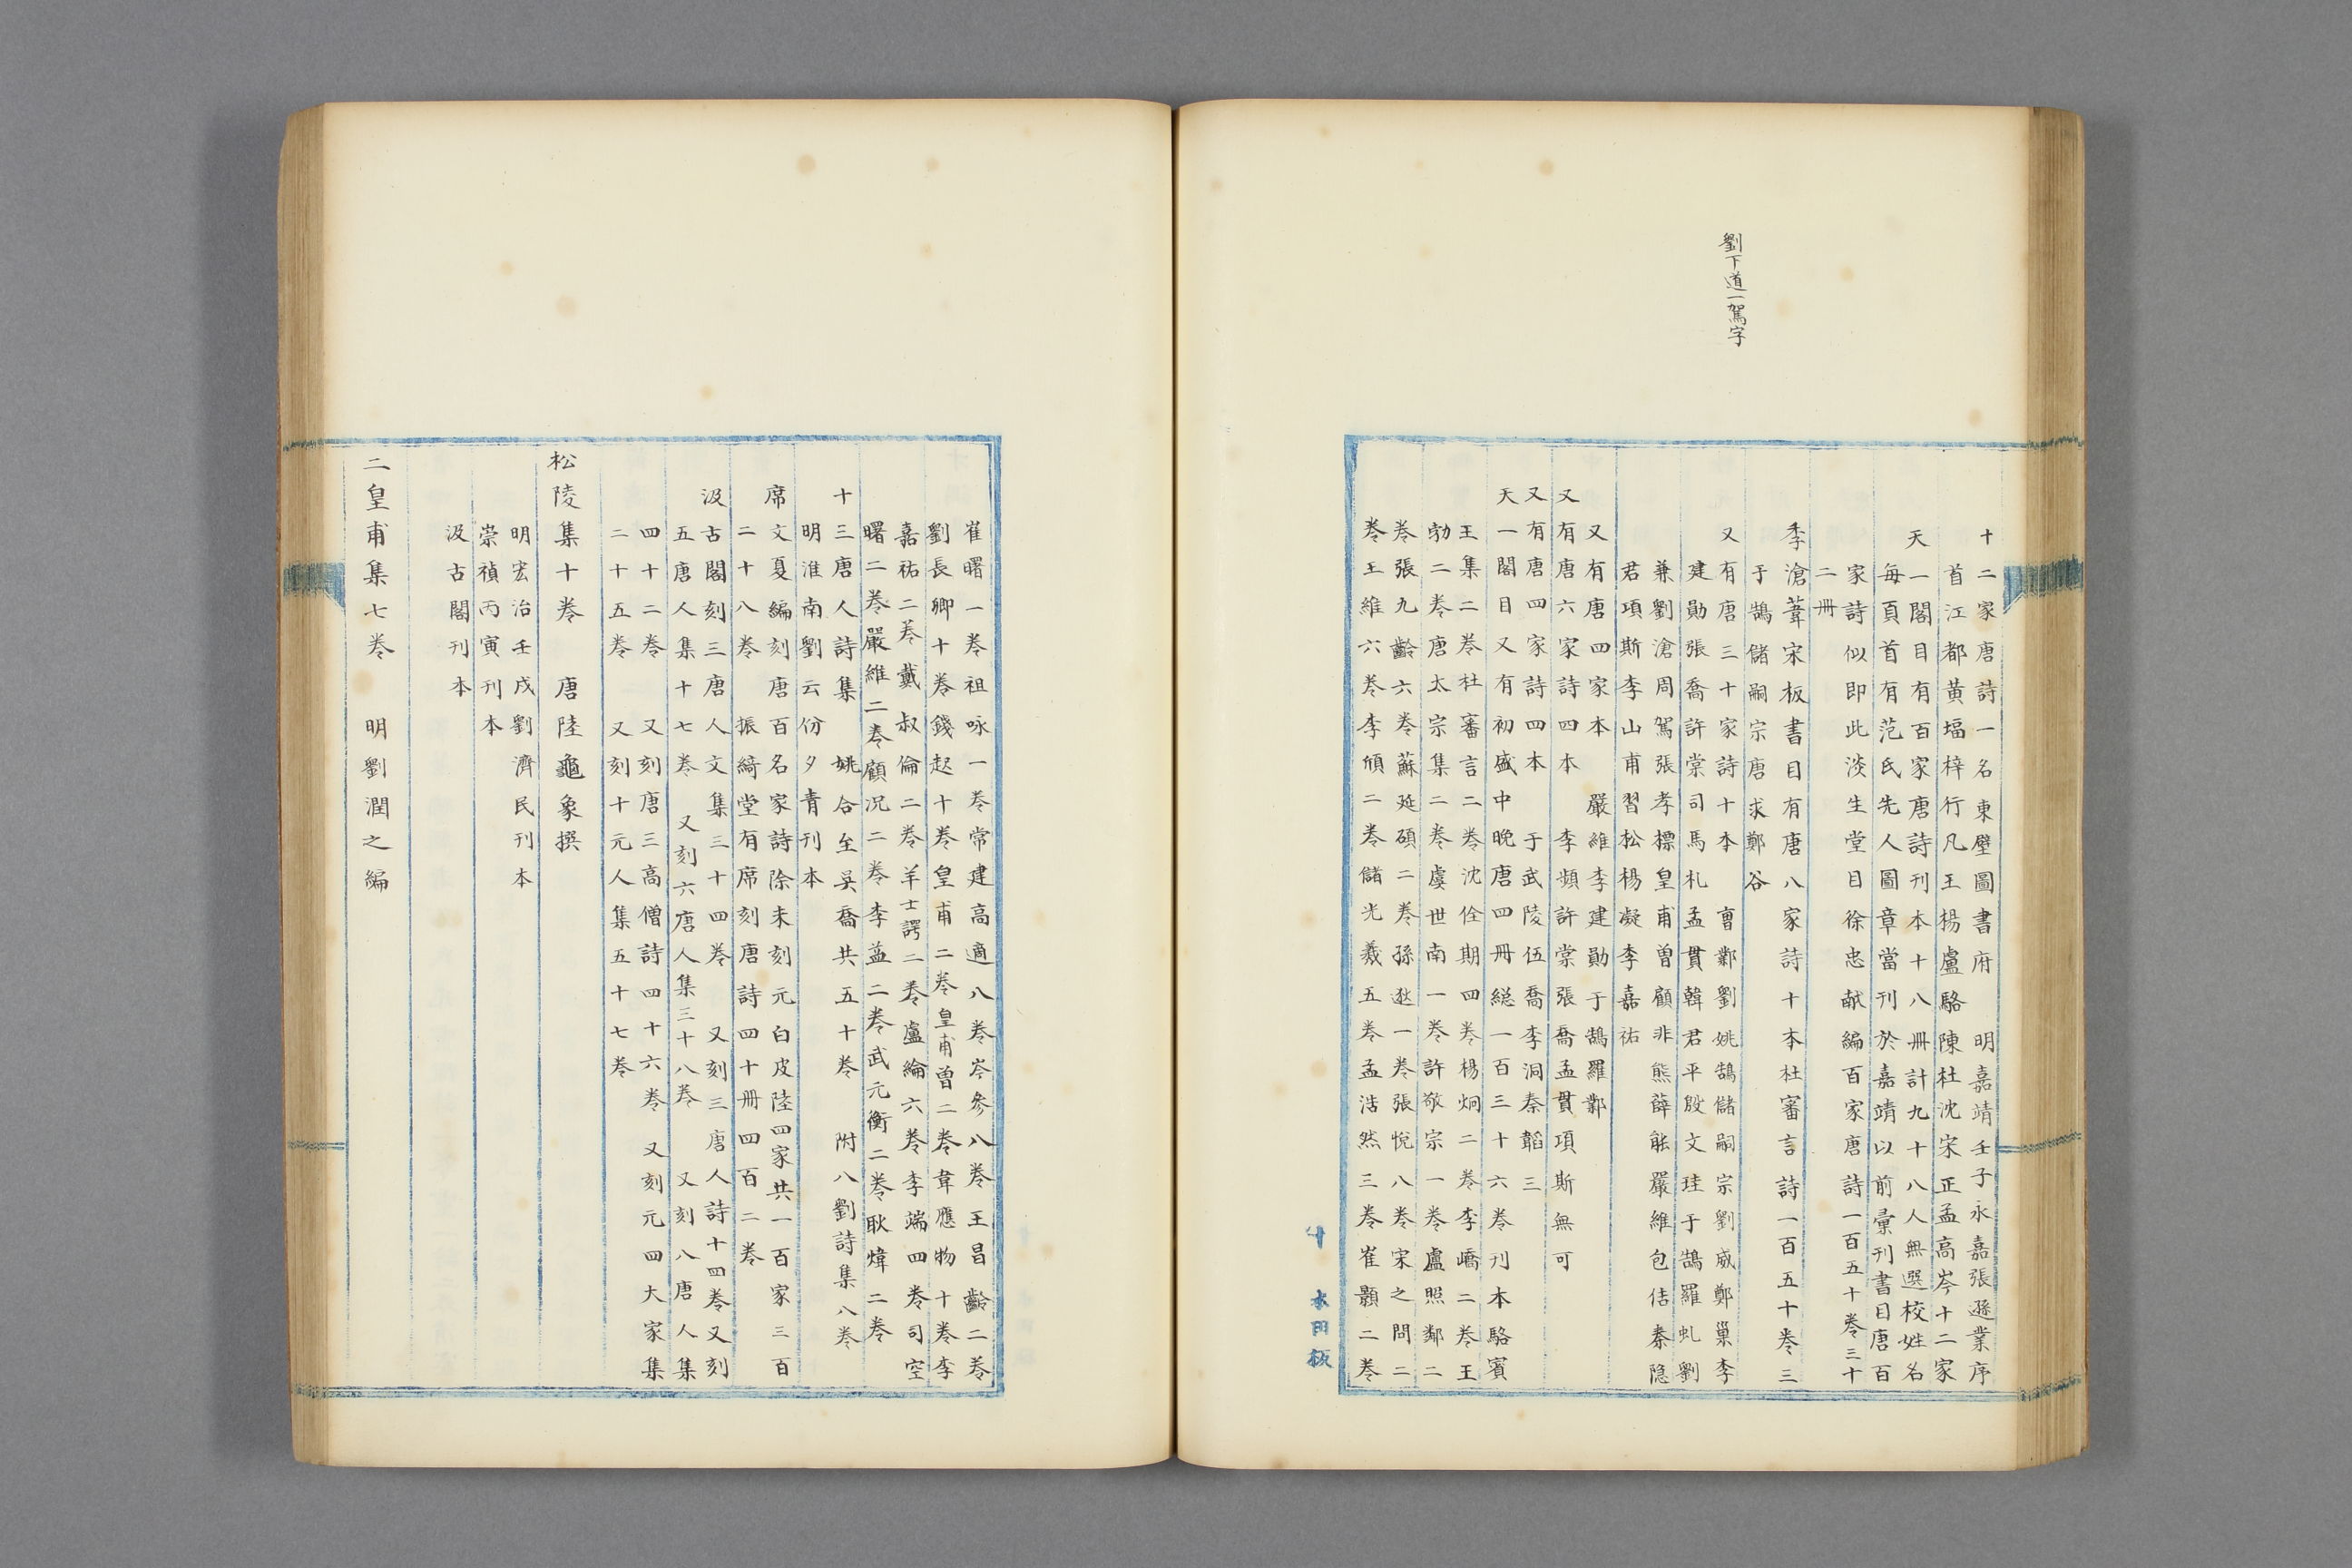 劉下道一駕字
十二家唐詩一名東壁圖書府　明嘉靖壬子永嘉張遜業序
首江都黄埴梓行凡王楊盧駱陳杜沈宋正孟高岑十二家
天一閣目有百家唐詩刊本十八冊計九十八人無選校姓名
每頁首有范氏先人圖章當刊於嘉靖以前彙刊書目唐百
家詩似即此淡生堂目徐忠献編百家唐詩一百五十卷三十
二冊
季滄葦宋板書目有唐八家詩十本杜審言詩一百五十卷三
于鵠儲嗣宗唐求鄭谷
又有唐三十家詩十本　曹鄴劉姚鵠儲嗣宗劉威鄭巢李
建勛張喬許棠司馬札孟貫韓君平殷文珪于鵠羅虬劉
兼劉滄周駕張孝標皇甫曾顧非熊薛能嚴維包佶秦隐
君項斯李山甫習松楊凝李嘉祐
又有唐四家本　嚴維李建勛于鵠羅鄴
又有唐六家詩四本　李頻許棠張喬孟貫項斯無可
又有唐四家詩四本　于武陵伍喬李洞秦韜三
天一閣目又有初盛中晚唐四冊総一百三十六卷刊本駱賓
王集二卷杜審言二卷沈佺期四卷楊炯二卷李嶠二卷王
勃二卷唐太宗集二卷虞世南一卷許敬宗一卷盧照鄰二
卷張九齡六卷蘇延碩二卷孫逖一卷張悅八卷宋之問二
卷王維六卷李頎二卷儲光羲五卷孟浩然三卷崔顥二卷
十　本田板
崔曙一卷祖咏一卷常建高適八卷岑參八卷王昌齡二卷
劉長卿十卷錢起十卷皇甫二卷皇甫曾二卷韋應物十卷李
嘉祐二卷戴叔倫二卷羊士諤二卷盧綸六卷李端四卷司空
曙二卷嚴維二卷顧况二卷李益二卷武元衡二卷耿煒二卷
十三唐人詩集　姚合至吴喬共五十卷　附八劉詩集八卷
明淮南劉云份夕青刊本
席文夏編刻唐百名家詩除未刻元白皮陸四家共一百家三百
二十八卷　振綺堂有席刻唐詩四十冊四百二卷
汲古閣刻三唐人文集三十四卷　又刻三唐人詩十四卷又刻
五唐人集十七卷　又刻六唐人集三十八卷　又刻八唐人集
四十二卷　又刻唐三高僧詩四十六卷　又刻元四大家集
二十五卷　又刻十元人集五十七卷
松陵集十卷　唐陸龜象撰
明宏治壬戌劉濟民刊本
崇禎丙寅刊本
汲古閣刊本
二皇甫集七卷　明劉潤之編